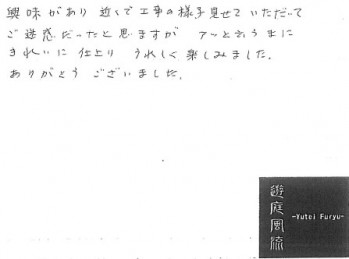 興味があり 近くで工事の様子見せていただいて
ご迷惑だったと思いますが アッと言うまに
きれいに仕上り うれしく楽しみました。
ありがとう ございました。
遊庭風流
-Yutei Furyu-